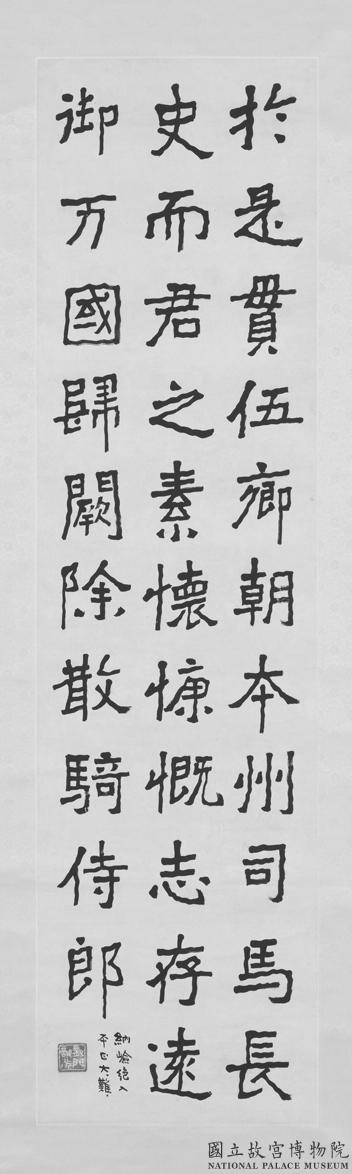 於是貫伍鄉朝本州司馬長
史而君之素懷慷慨志存遠
御万國歸闕除散騎侍郎
納險絕入
平正大難
國立故宮博物院
NATIONAL PALACE MUSEUM